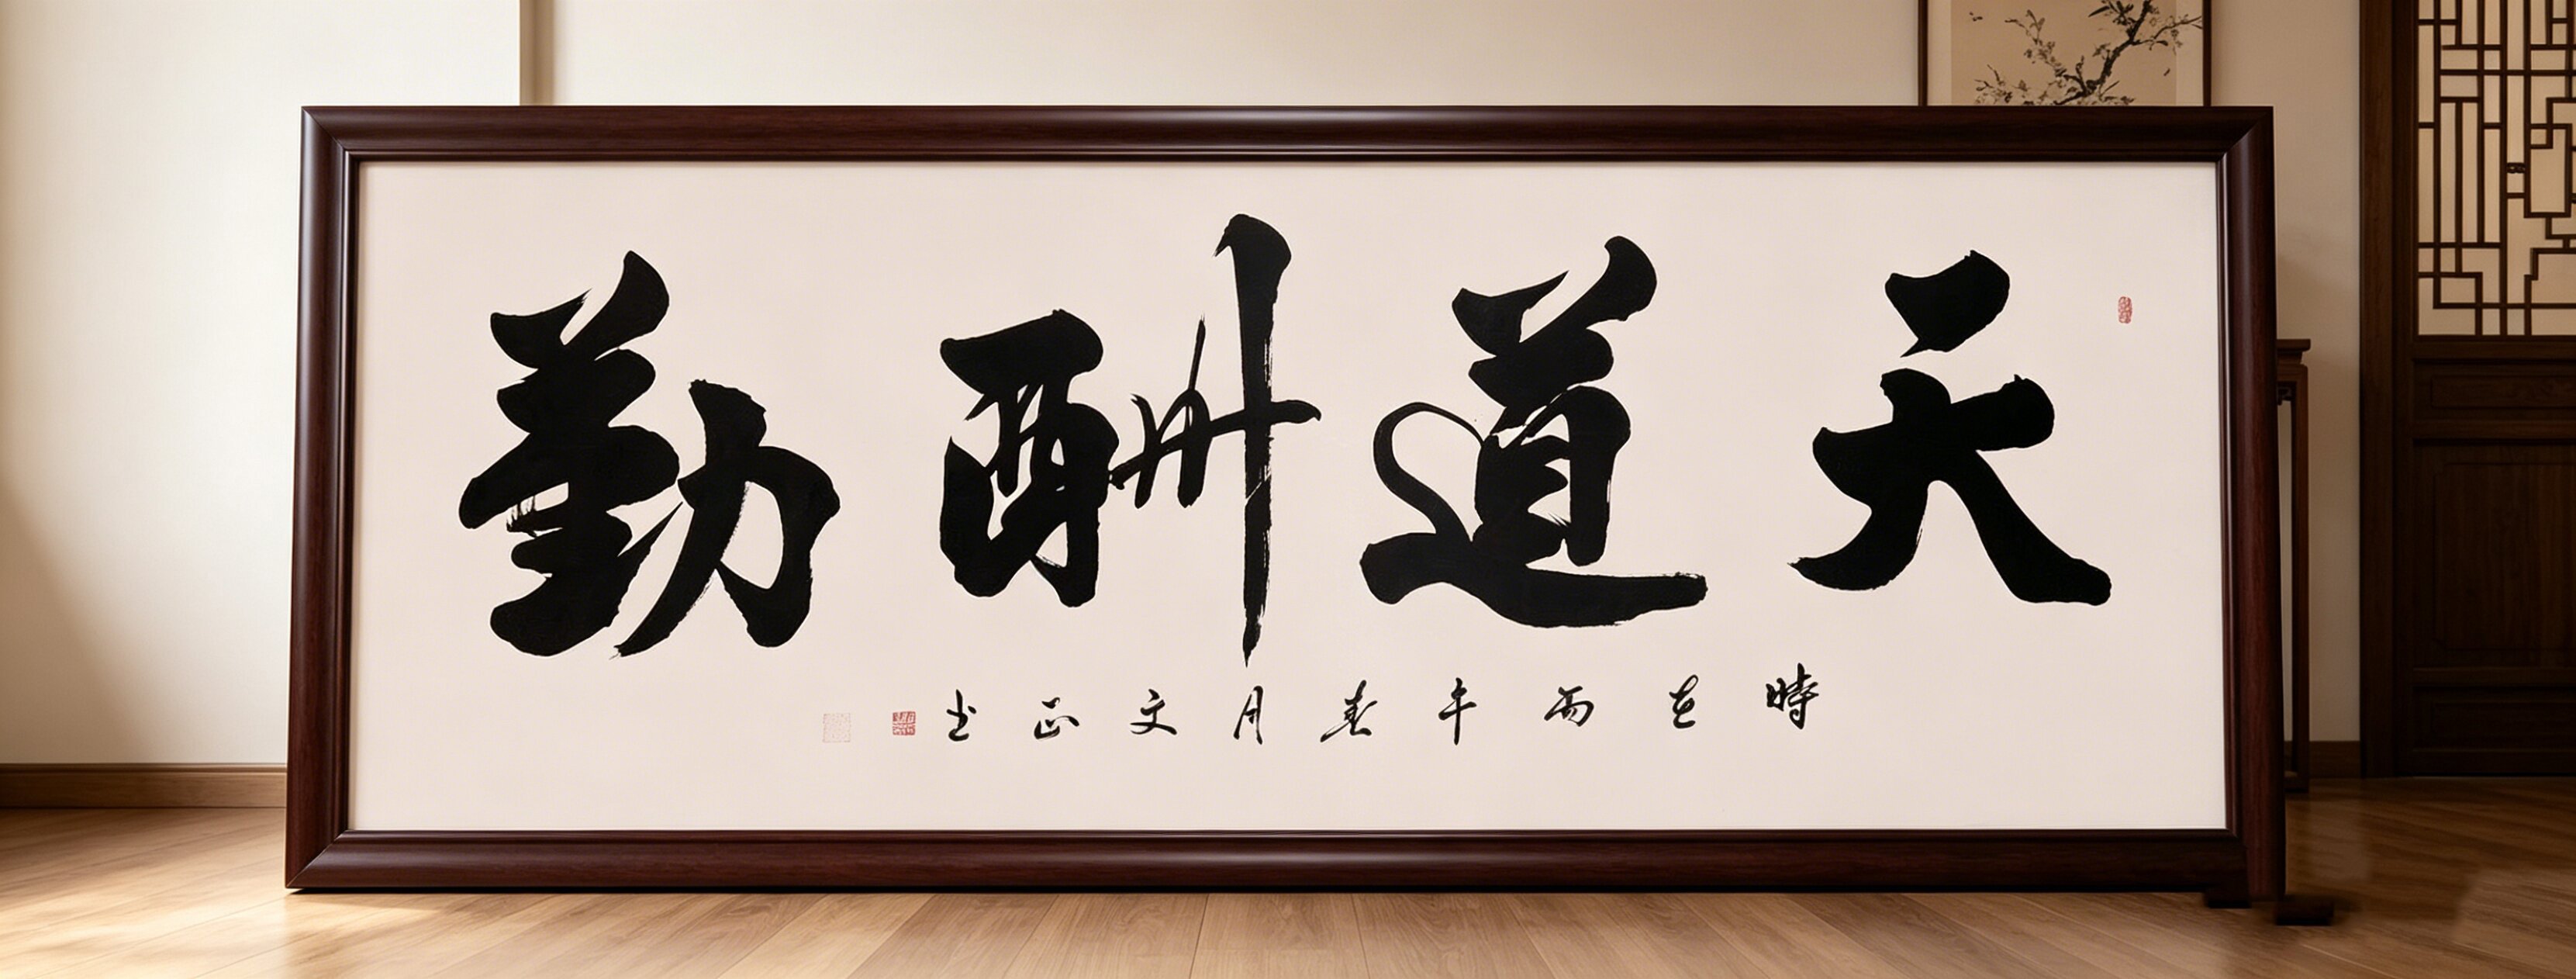 天道酬勤
時在丙午春月文正书